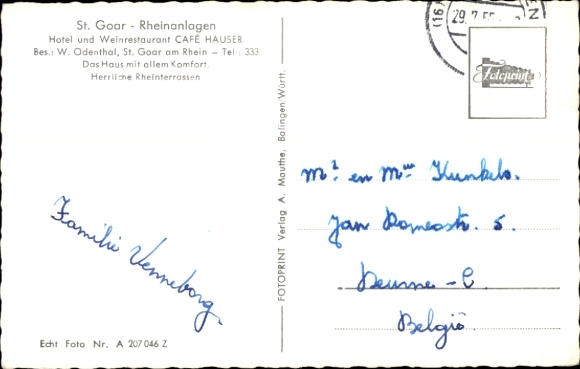 St. Goar - Rheinanlagen
Hotel und Weinrestaurant CAFÉ HAUSER
Bes.: W. Odenthal, St. Goar am Rhein – Tel. 333
Das Haus mit allem Komfort.
Herrliche Rheinterrassen
Familie Venneborg.
Echt Foto Nr. A 207 046 Z
FOTOPRINT Verlag A. Mauthe, Balingen/Württ.
(16)
29.7.55
EN
Fotoprint
Mr. en Mw. Kunkels.
Jan Romeostr. 5.
Deurne - C.
België